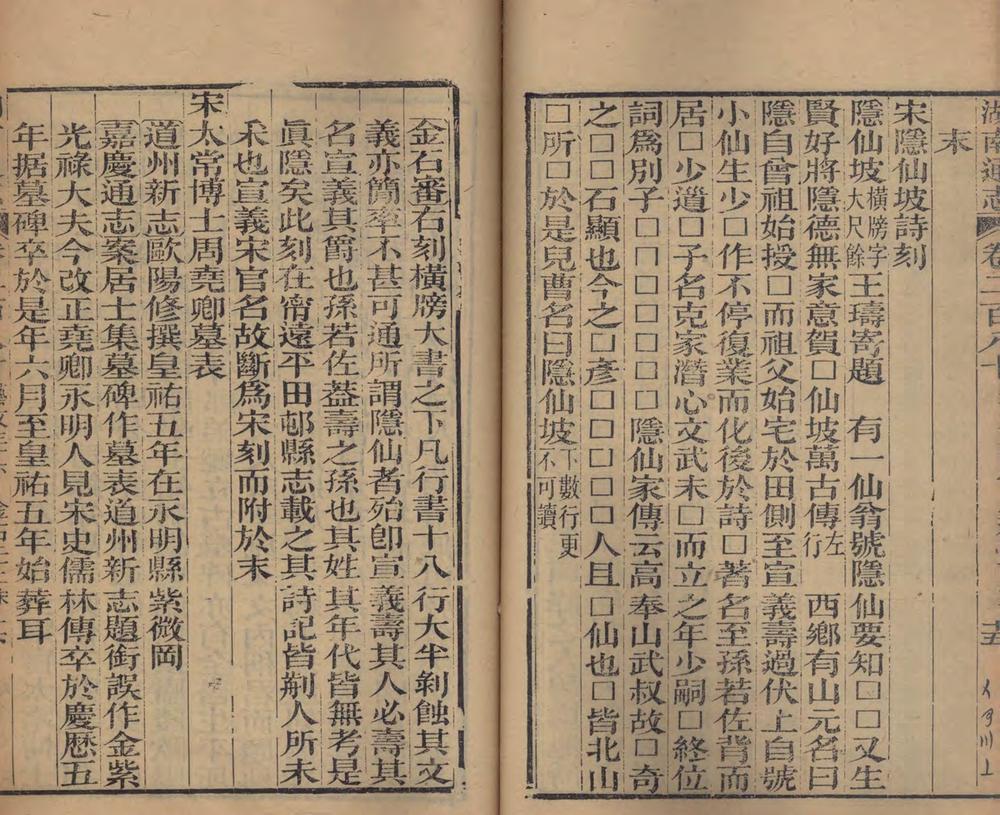 湖南通志 卷二百八十
末
宋隱仙坡詩刻
隱仙坡橫牓字大尺餘王壔寄題　有一仙翁號隱仙要知□□又生
賢好將隱德無家意賀□仙坡萬古傳左行　西鄉有山元名曰
隱自曾祖始授□而祖父始宅於田側至宣義壽過伏上自號
小仙生少□作不停復業而化後於詩□著名至孫若佐背而
居□少遒□子名克家潛心文武未□而立之年少嗣□終位
詞爲別子□□□□□□□隱仙家傳云高奉山武叔故□奇
之□□石顯也今之□彥□□□□□人且□仙也□皆北山
□所□於是兒曹名曰隱仙坡下數行更不可讀
金石審右刻橫牓大書之下凡行書十八行大半剝蝕其文
義亦簡率不甚可通所謂隱仙者殆卽宣義壽其人必壽其
名宣義其爵也孫若佐葢壽之孫也其姓其年代皆無考是
眞隱矣此刻在甯遠平田邨縣志載之其詩記皆剙人所未
釆也宣義宋官名故斷爲宋刻而附於末
宋太常博士周堯卿墓表
道州新志歐陽修撰皇祐五年在永明縣紫微岡
嘉慶通志案居士集墓碑作墓表道州新志題銜誤作金紫
光祿大夫今改正堯卿永明人見宋史儒林傳卒於慶歷五
年据墓碑卒於是年六月至皇祐五年始葬耳